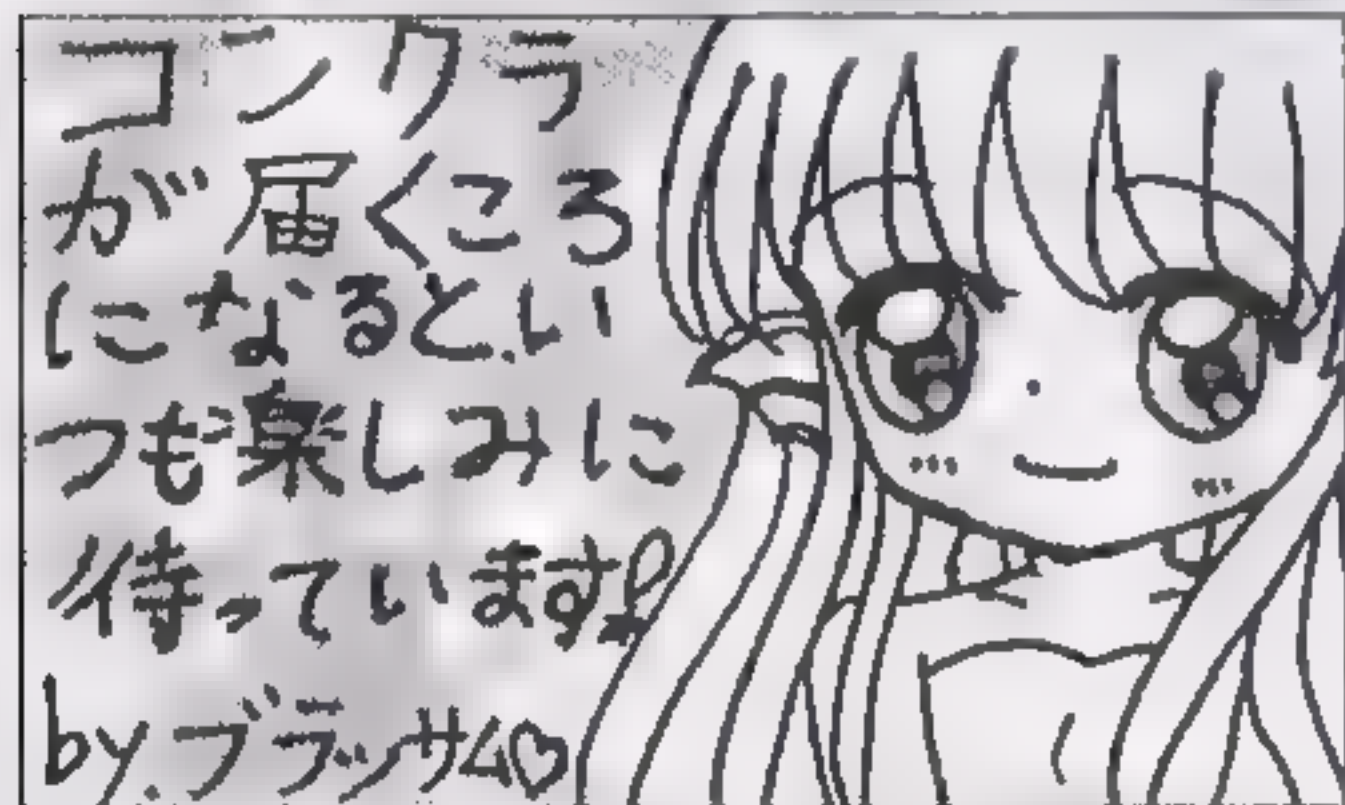 コンクラ
が届くころ
になると、い
つも楽しみに
待っています!
by.ブラッサム♡